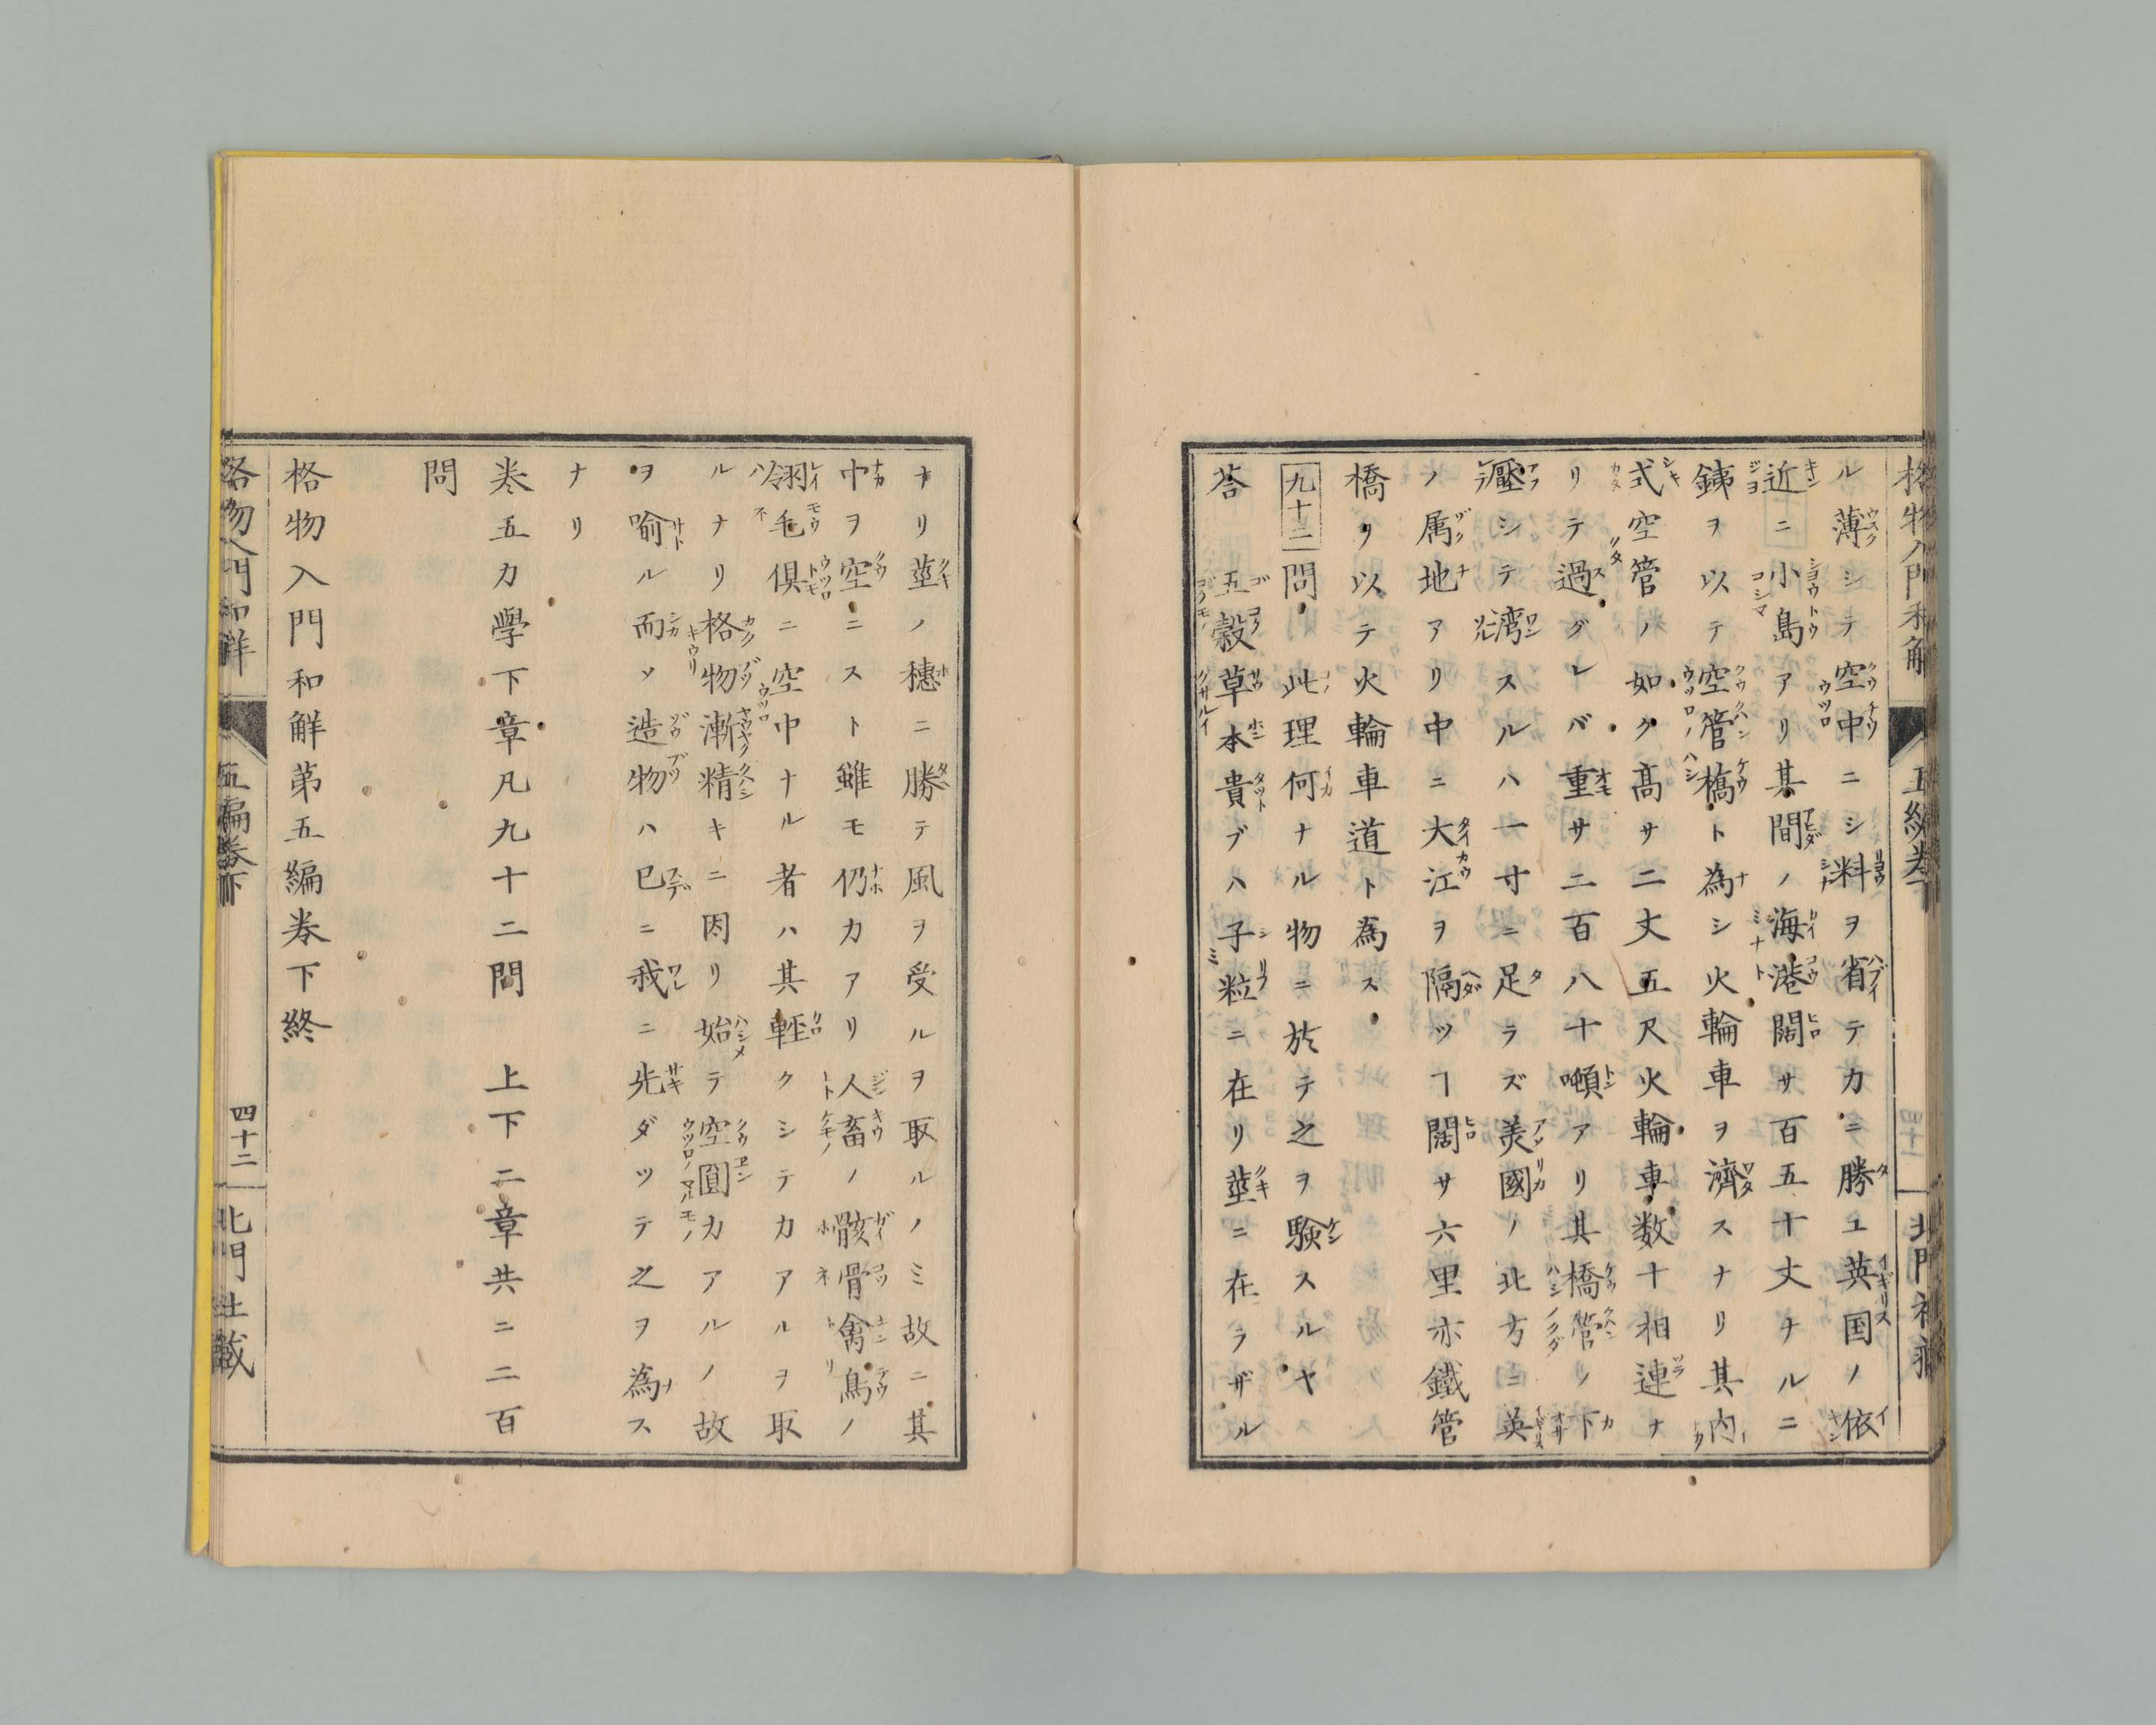 格物入門和解
五編巻下
北門社蔵
ル薄シテ空中ニシ料ヲ省テカニ勝ユ英国ノ依
近ニ小島アリ其間ノ海港闊サ百五十丈ナルニ
銕ヲ以テ空管橋ト為シ火輪車ヲ濟スナリ其内
式空管ノ如ク高サ二丈五尺火輪車数十相連ナ
リテ過グレバ重サ二百八十噸アリ其橋管ノ下
壓シテ湾スルハ一寸ニ足ラズ美國ノ北方ニ英
ノ属地アリ中ニ大江ヲ隔ツヿ闊サ六里亦鐵管
橋リ以テ火輪車道ト為ス
九十二問 此理何ナル物ニ於テ之ヲ験スルヤ
荅 五穀草本貴ブハ子粒ニ在リ莖ニ在ラザル
ナリ莖ノ穗ニ勝テ風ヲ受ルヲ取ルノミ故ニ其
中ヲ空ニスト雖モ仍カアリ人畜ノ骸骨禽鳥ノ
翎毛倶ニ空中ナル者ハ其輕クシテカアルヲ取
ルナリ格物漸精キニ因リ始テ空圓カアルノ故
ヲ喻ル而ソ造物ハ已ニ我ニ先ダツテ之ヲ為ス
ナリ
巻五力學下章凡九十二問 上下二章共ニ二百
問
格物入門和解第五編巻下終
格物入門和解
五編巻下
四十二
北門社藏